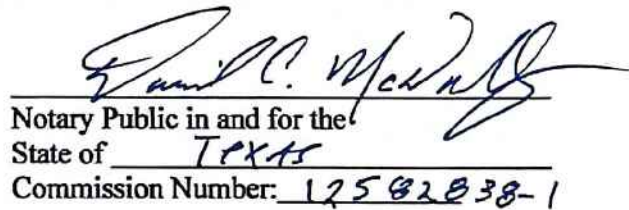 C.
Notary Public in and for the
State of Texas
Commission Number: 12582838-1